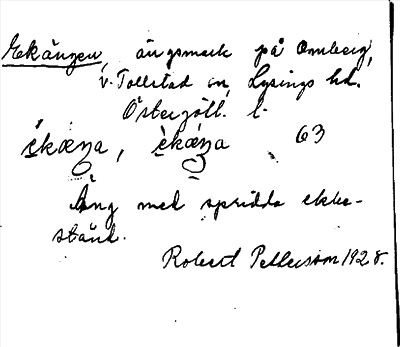 Ekängen, ängsmark på Omberg,
V. Tollstad sn, Lysings hd.
Östergötl. l.
ékæŋa, èkæŋa 63
Äng med spridda ekbe-
stånd.
Robert Pettersson 1928.